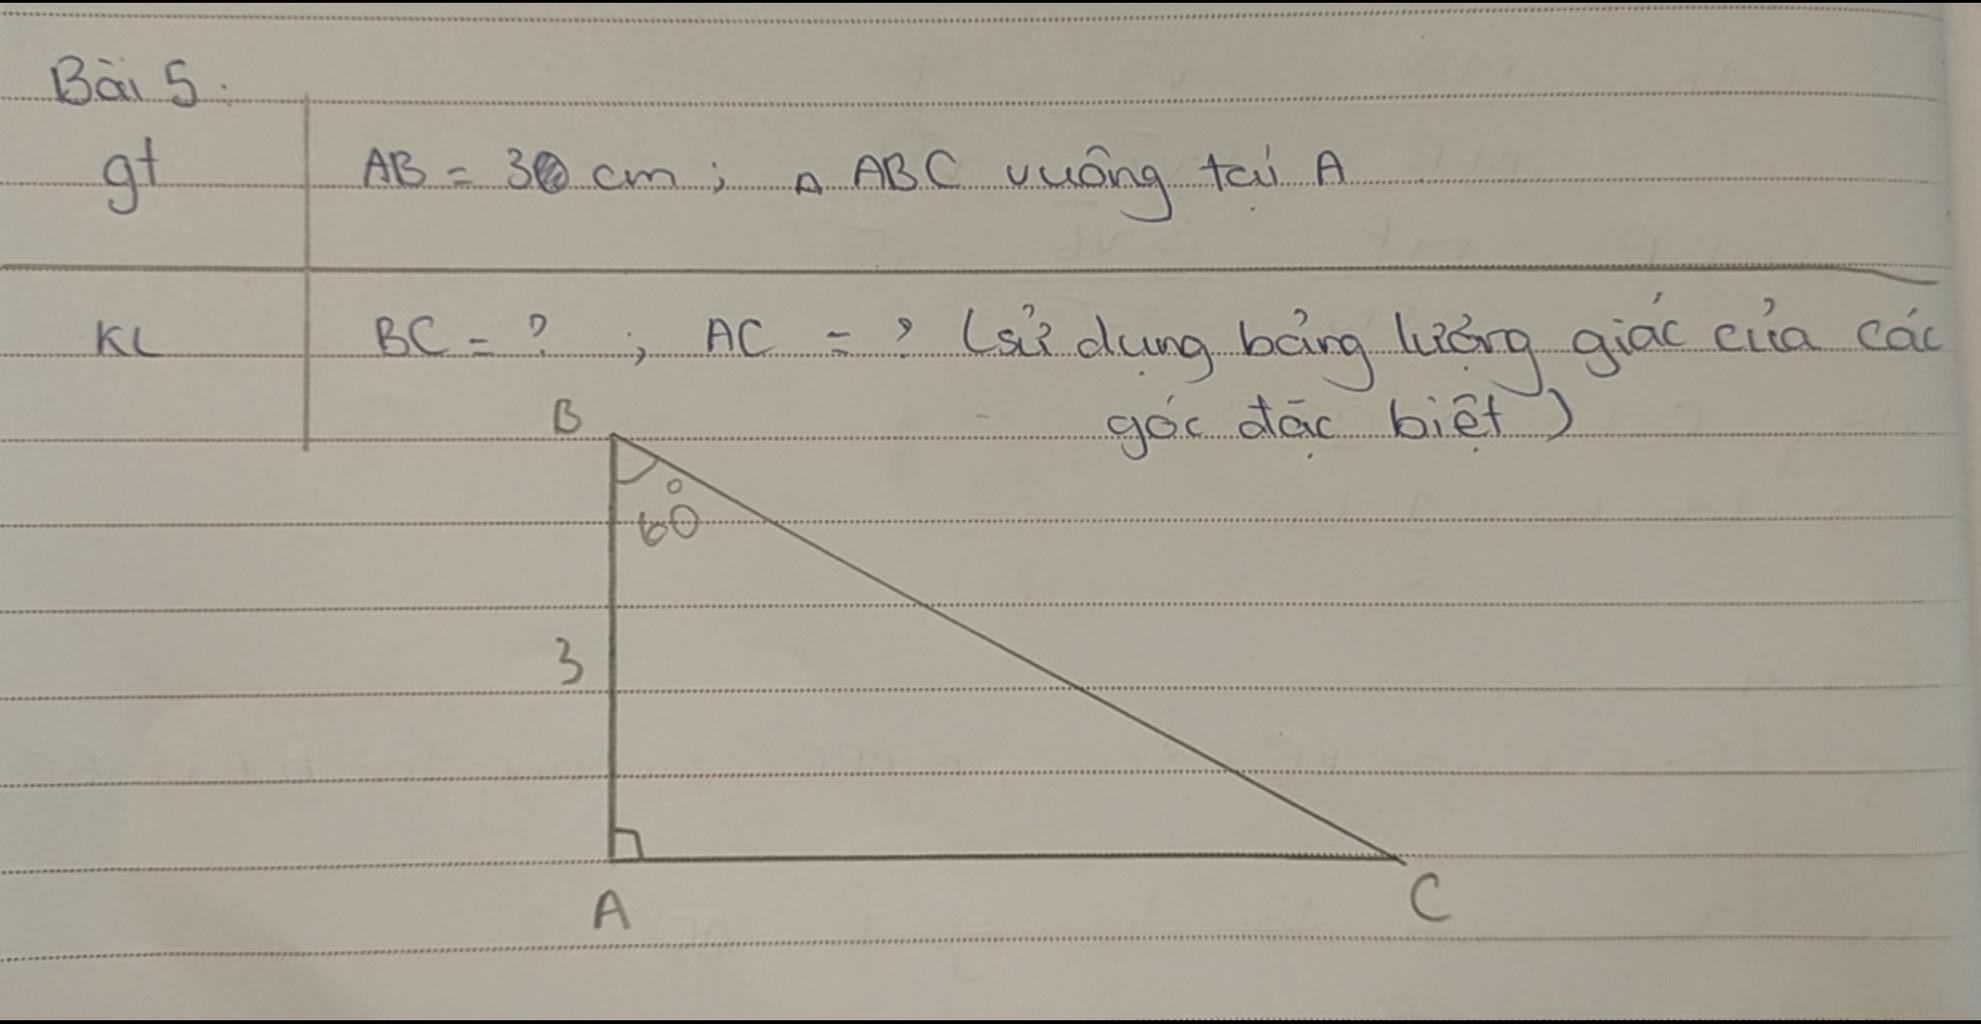 Bài 5:
gt AB = 3 cm; △ ABC vuông tại A
KL BC = ? ; AC = ? (sử dụng bảng lượng giác của các
góc đặc biệt)
B
60°
3
A C